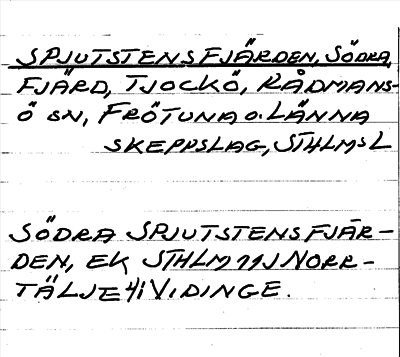 SPJUTSTENSFJÄRDEN, SÖDRA,
FJÄRD, TJOCKÖ, RÅDMANS-
Ö SN, FRÖTUNA O. LÄNNA
SKEPPSLAG, STHLMS L
SÖDRA SPJUTSTENSFJÄR-
DEN, EK STHLM 11J NORR-
TÄLJE 4i VIDINGE.